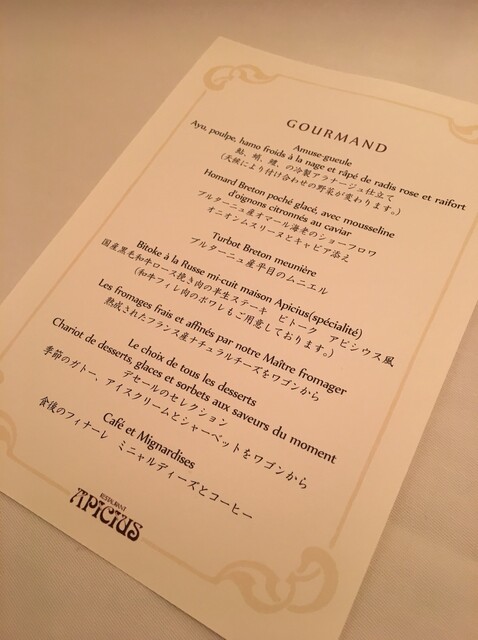 GOURMAND
Amuse-gueule
Ayu, poulpe, hamo froids à la nage et râpé de radis rose et raifort
鮎、蛸、鱧、の冷製アラナージュ仕立て
(天候により付け合わせの野菜が変わります。)
Homard Breton poché glacé, avec mousseline
d'oignons citronnés au caviar
ブルターニュ産オマール海老のショーフロワ
オニオンムスリーヌとキャビア添え
Turbot Breton meunière
ブルターニュ産平目のムニエル
Bitoke à la Russe mi-cuit maison Apicius(spécialité)
国産黒毛和牛ロース挽き肉の半生ステーキ ビトーク アピシウス風
(和牛フィレ肉のポワレもご用意しております。)
Les fromages frais et affinés par notre Maître fromager
熟成されたフランス産ナチュラルチーズをワゴンから
Le choix de tous les desserts
デセールのセレクション
Chariot de desserts, glaces et sorbets aux saveurs du moment
季節のガトー、アイスクリームとシャーベットをワゴンから
Café et Mignardises
食後のフィナーレ ミニャルディーズとコーヒー
RESTAURANT
APICIUS